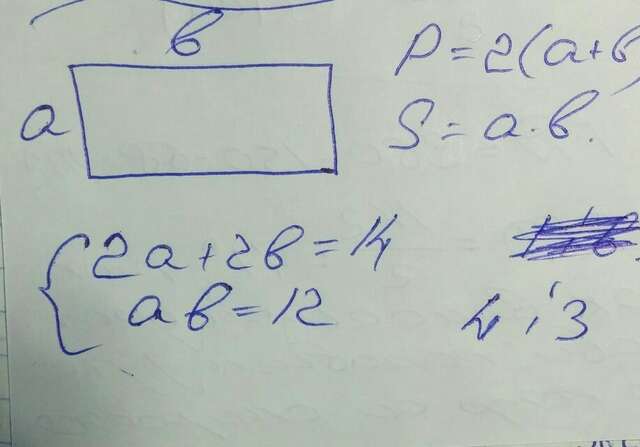 в
P = 2(a+в)
a
S = a·в.
2a+2в=14
aв=12
4 і 3